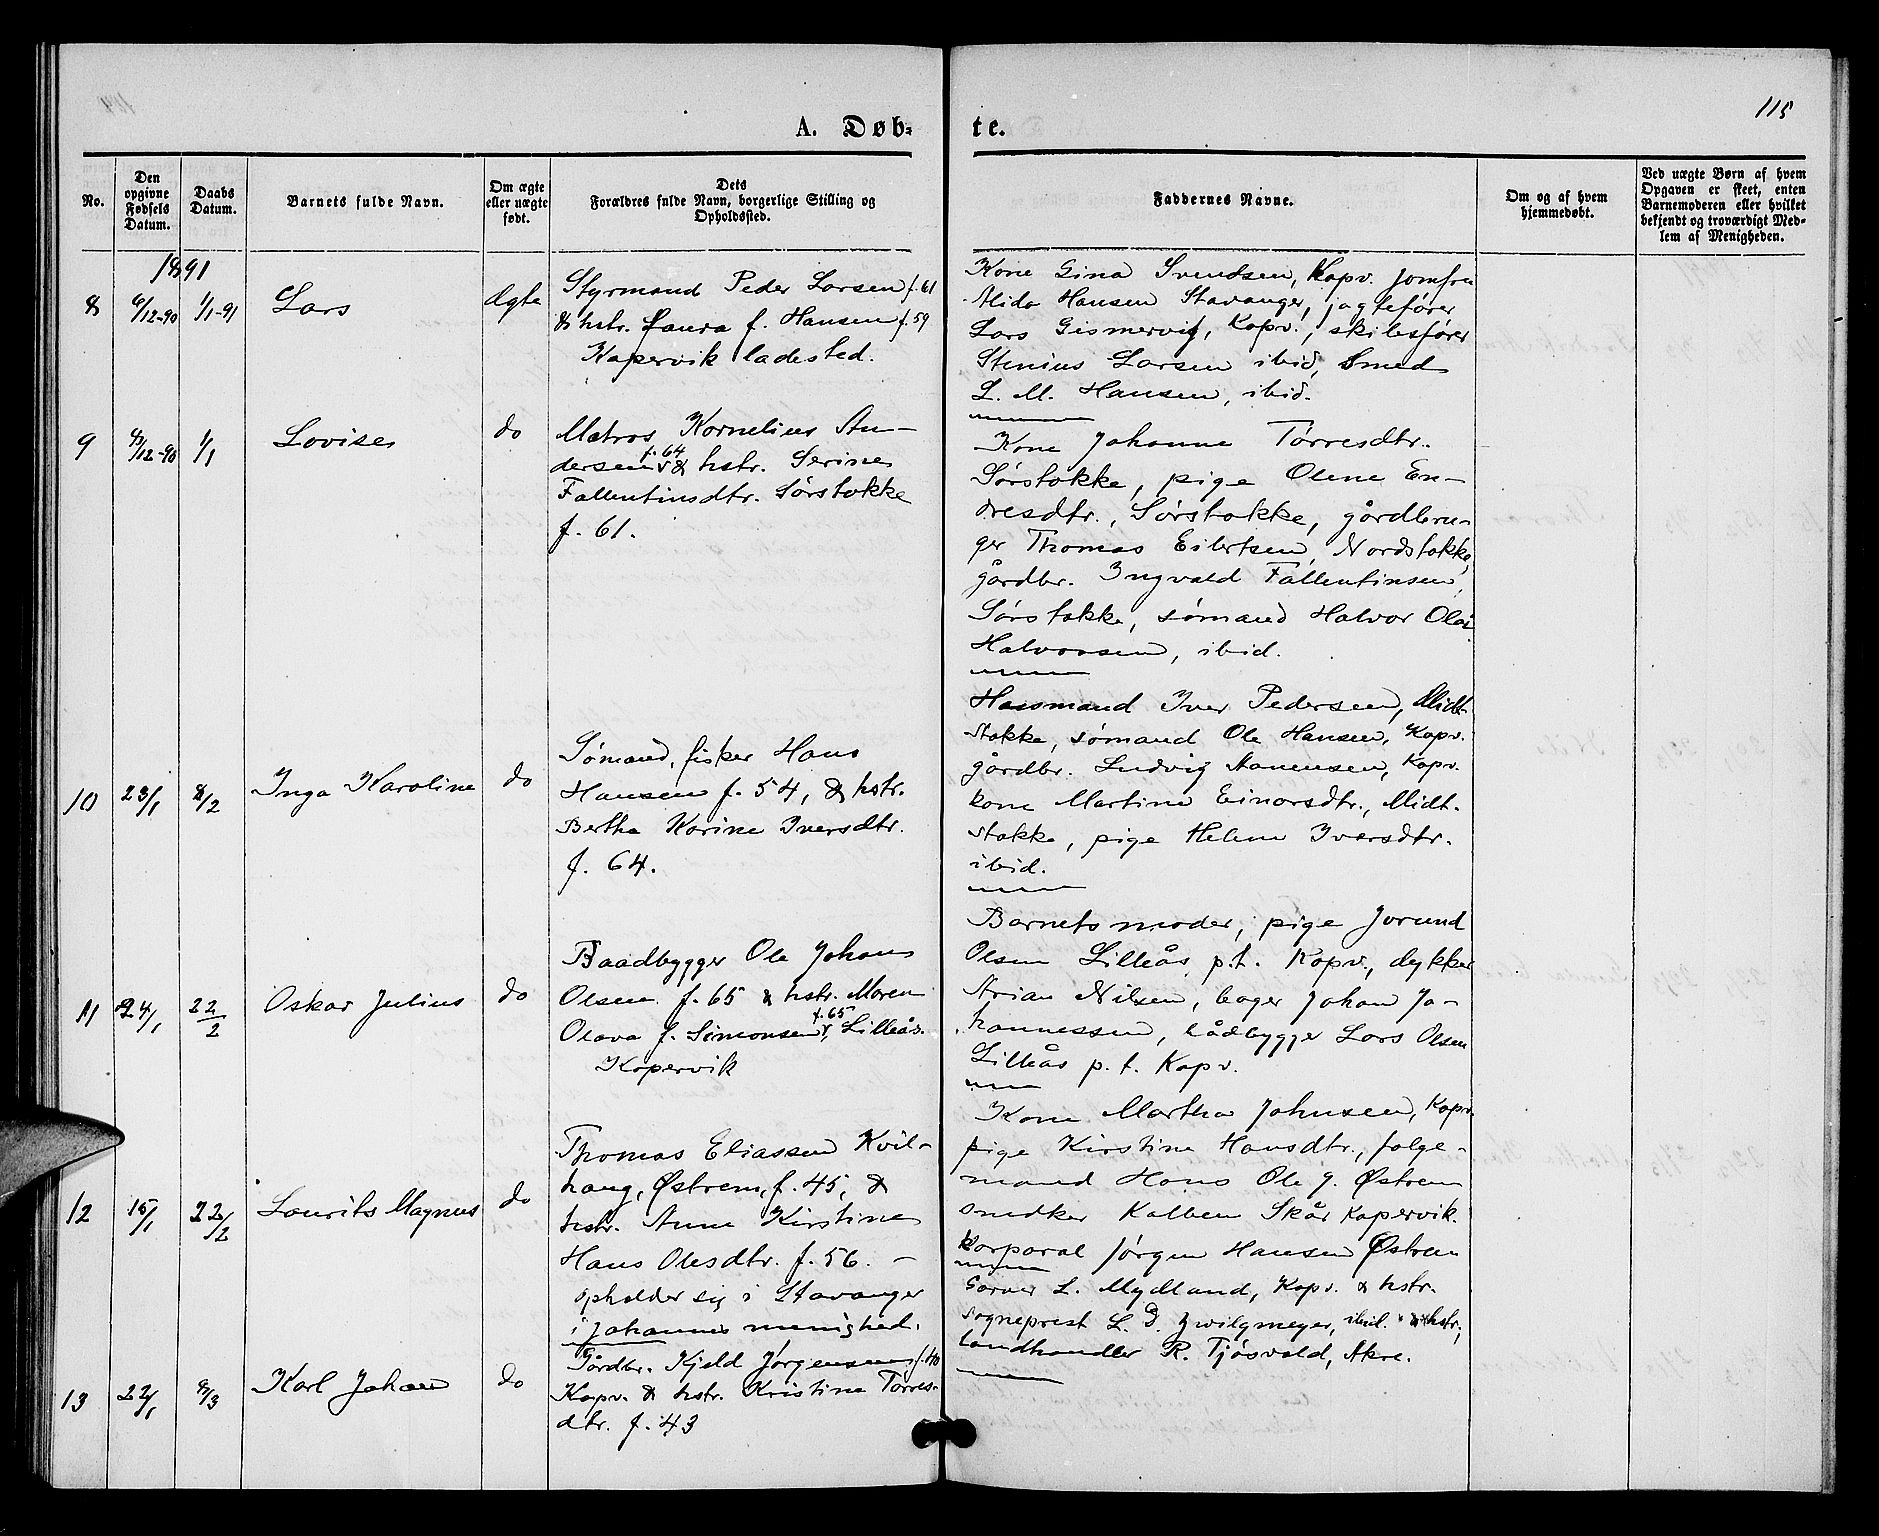 115
A. Døb-
te.
No.
Den
opgivne
Fødsels
Datum.
Daabs
Datum.
Barnets fulde Navn.
Om ægte
eller uægte
født.
Dets
Forældres fulde Navn, borgerlige Stilling og
Opholdssted.
Faddernes Navne.
Om og af hvem
hjemmedøbt.
Ved uægte Børn af hvem
Opgaven er skeet, enten
Barnemoderen eller hvilket
bekjendt og troværdigt Med-
lem af Menigheden.
1891
8 6/12-90 1/1-91 Lars Ægte
Styrmand Peder Larsen f. 61
& hstr. Laura f. Hansen f. 59
Kopervik ladested.
Kone Gina Svendsen, Kopv. jomfru
Alida Hansen Stavanger, jagtefører
Lars Gismervig, Kopv., skibsfører
Stenius Larsen ibid, Smed
L. M. Hansen, ibid.
9 1/1 Lovise do
Matros Kornelius An-
dersen f. 64 & hstr. Serine
Fallentinsdtr. Sørstokke
f. 61.
Kone Johanne Tørresdtr.
Sørstokke, pige Olene En-
dresdtr., Sørstokke, gårdbru-
ger Thomas Eilertsen, Nordstokke,
gårdbr. Ingvald Fallentinsen,
Sørstokke, sømand Halvor Olai
Halvorsen, ibid.
10 23/1 8/2 Inga Karoline do
Sømand, fisker Hans
Hansen f. 54, & hstr.
Berthe Karine Iversdtr.
f. 64.
Husmand Iver Pedersen, Midt-
stokke, sømand Ole Hansen, Kopv.
gårdbr. Ludvig Monensen, Kopv.
kone Martine Einarsdtr., Midt-
stokke, pige Helene Iversdtr.
ibid.
11 24/1 22/2 Oskar Julius do
Baadbygger Ole Johan
Olsen f. 65 & hstr. Maren
Olava f. Simonsen f. 65, Lilleås.
Kopervik
Barnets moder, pige Jorund
Olsen Lilleås p.t. Kopv., dykker
Arian Nilsen, bager Johan Jo-
hannessen, bådbygger Lars Olsen
Lilleås p. t. Kopv.
12 15/1 22/2 Laurits Magnus do
Thomas Eliassen Kvil-
haug, Østrem, f. 45, &
hstr. Anne Kirstine
Hans Olesdtr. f. 56. -
opholder sig i Stavanger
i Johannes menighed.
Kone Martha Johnsen, Kopv.
pige Kirstine Hansdtr., følge-
mand Hans Ole g. Østrem
snedker Kolben Skår Kopervik.
korporal Jørgen Hansen Østrem
13 22/1 8/3 Karl Johan do
Gårdbr. Kjeld Jørgensen f. 40
Kopv. & hstr. Kristine Tørres-
dtr. f. 43
Garver L. Mydland, Kopv. & hstr.
sogneprest L. D. Zwilgmeyer, ibid. & hstr,
landhandler R. Tjøsvold, Akre.